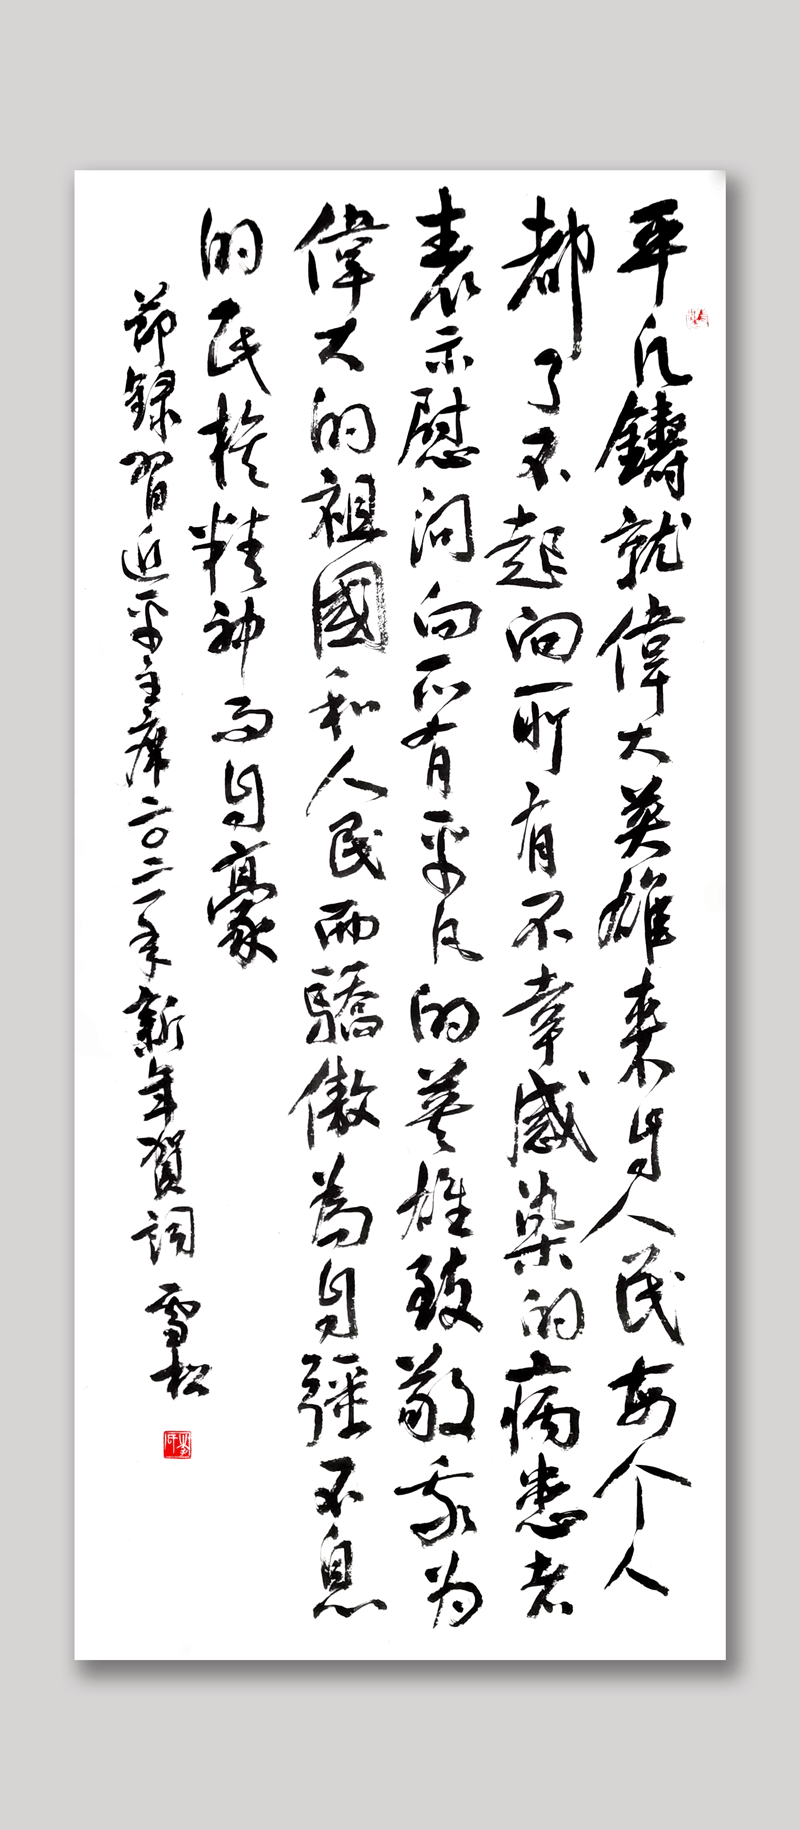 平凡鑄就偉大英雄来自人民每个人
都了不起向所有不幸感染的病患者
表示慰问向所有平凡的英雄致敬我为
偉大的祖國和人民而驕傲為自彊不息
的民族精神而自豪
節録習近平主席二〇二一年新年賀詞 雪松